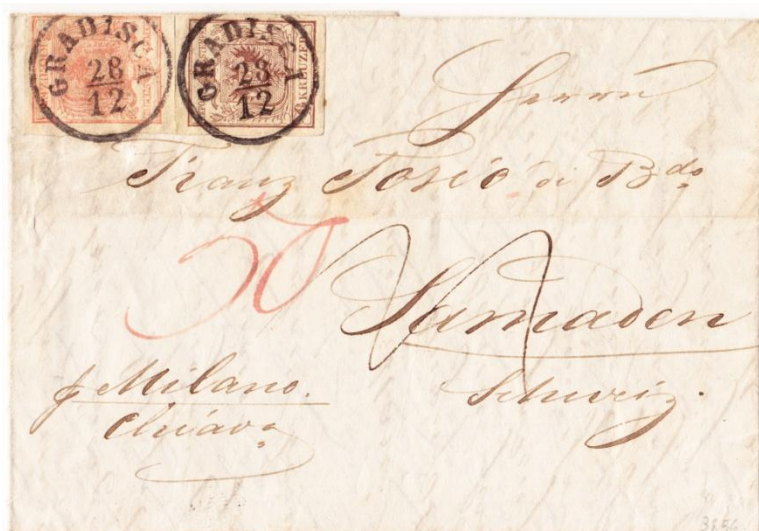 GRADISCA 28/12 GRADISCA 28/12
KREUZER
Herrn
Franz Tosio di B.do
Samaden
Schweiz.
p Milano.
Chiava